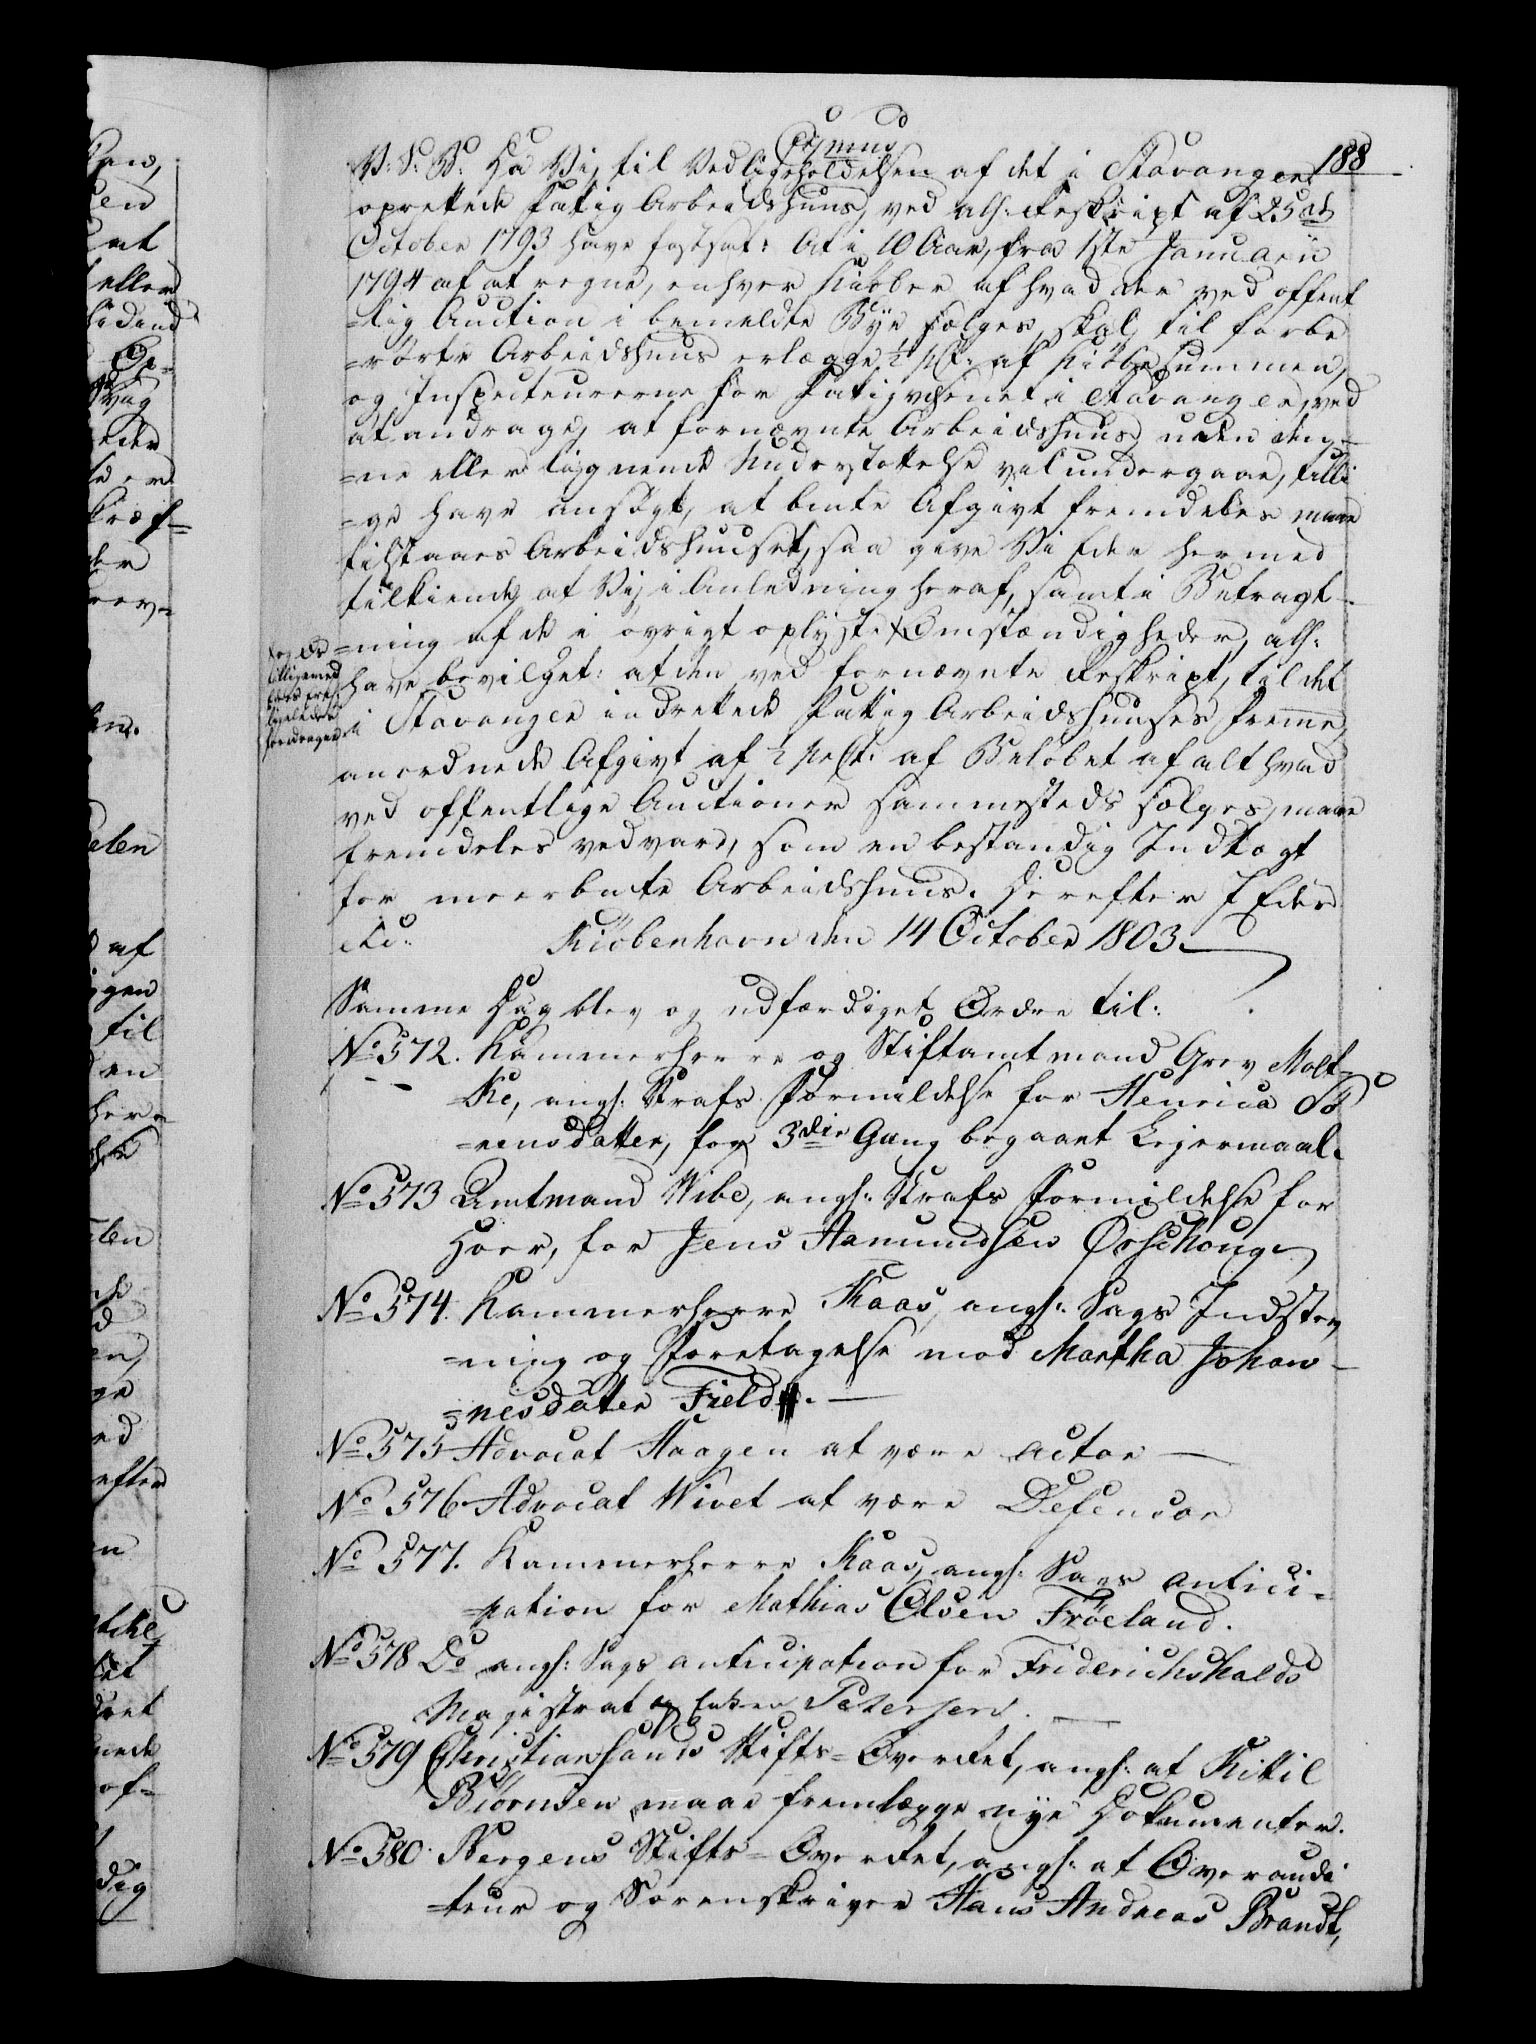 188
V: S: B: Da Vi, til Vedligeholdelsen af det i Stavanger
oprettede Fattig Arbeidshuus, ved alh: Reskript af 25de
October 1793 have fastsat: At i 10 Aar, fra 1ste Januarii
1794 af at regne, enhver Kiöber af hvad der ved offent
=lig Auction i bemeldte Bye sælges, skal til forbe
=rörte Arbeidshuus erlægge ½ pCt: af Kiöbesummen,
og Inspecteurerne for Fattigvæsenet i Stavanger, ved
at andrage, at fornævnte Arbeidshuus uden den=
=ne eller lignende Understøttelse vil undergaae, tilli
=ge have ansögt, at bemte Afgivt fremdeles maae
tilstaaes Arbeidshuuset, saa give Vi Eder hermed
tilkiende, at Vi, i Anledning heraf, samt i Betragt=
=ning af de i øvrigt oplyste Omstændigheder, alh:
og de
tilligemed
Eders
forslag
have bevilget: at den ved fornævnte Reskript, til det
i Stavanger indrettede Fattig Arbeidshuuses Fremme,
anordnede Afgivt af ½ pCt: af Belöbet af alt hvad
ved offentlige Auctioner sammesteds sælges, maae
fremdeles vedvare, som en bestandig Indtægt
for meerbemte Arbeidshuus. Derefter I Eder
etc: Kiöbenhavn den 14 October 1803.
Samme Dag blev og udfærdiget Ordre til:
No 572. Kammerherre og Stiftamtmand Grev Molt=
ke, angl: Strafs Formildelse for Henrica
=ensdatter, for 3die Gang begaaet Lejermaal.
No 573 Amtmand Wibe, angl: Strafs Formildelse for
Hoer, for Jens Aamundsen Øvschouge
No 574. Kammerherre Kaas, angl: Sags Indstev
=ning og Foretagelse mod Martha Johan=
=nesdatter Field.
No 575 Advocat Haagen at være Actor
No 576 Advocat Wivet at være Defensor
No 577. Kammerherre Kaas, angl: Sags antici=
=pation for Mathias Olsen Fröeland.
No 578 Do angl: Sags anticipation for Friderichshalds
Magistrat og Enken Petersen.
No 579 Christiansands Stifts=Overret, angl: at Kittil
Biörnsen maae fremlægge nye Dokumenter.
No 580. Bergens Stifts=Overret, angl: at Overaudi
=teur og Sorenskriver Hans Andreas Brandt,